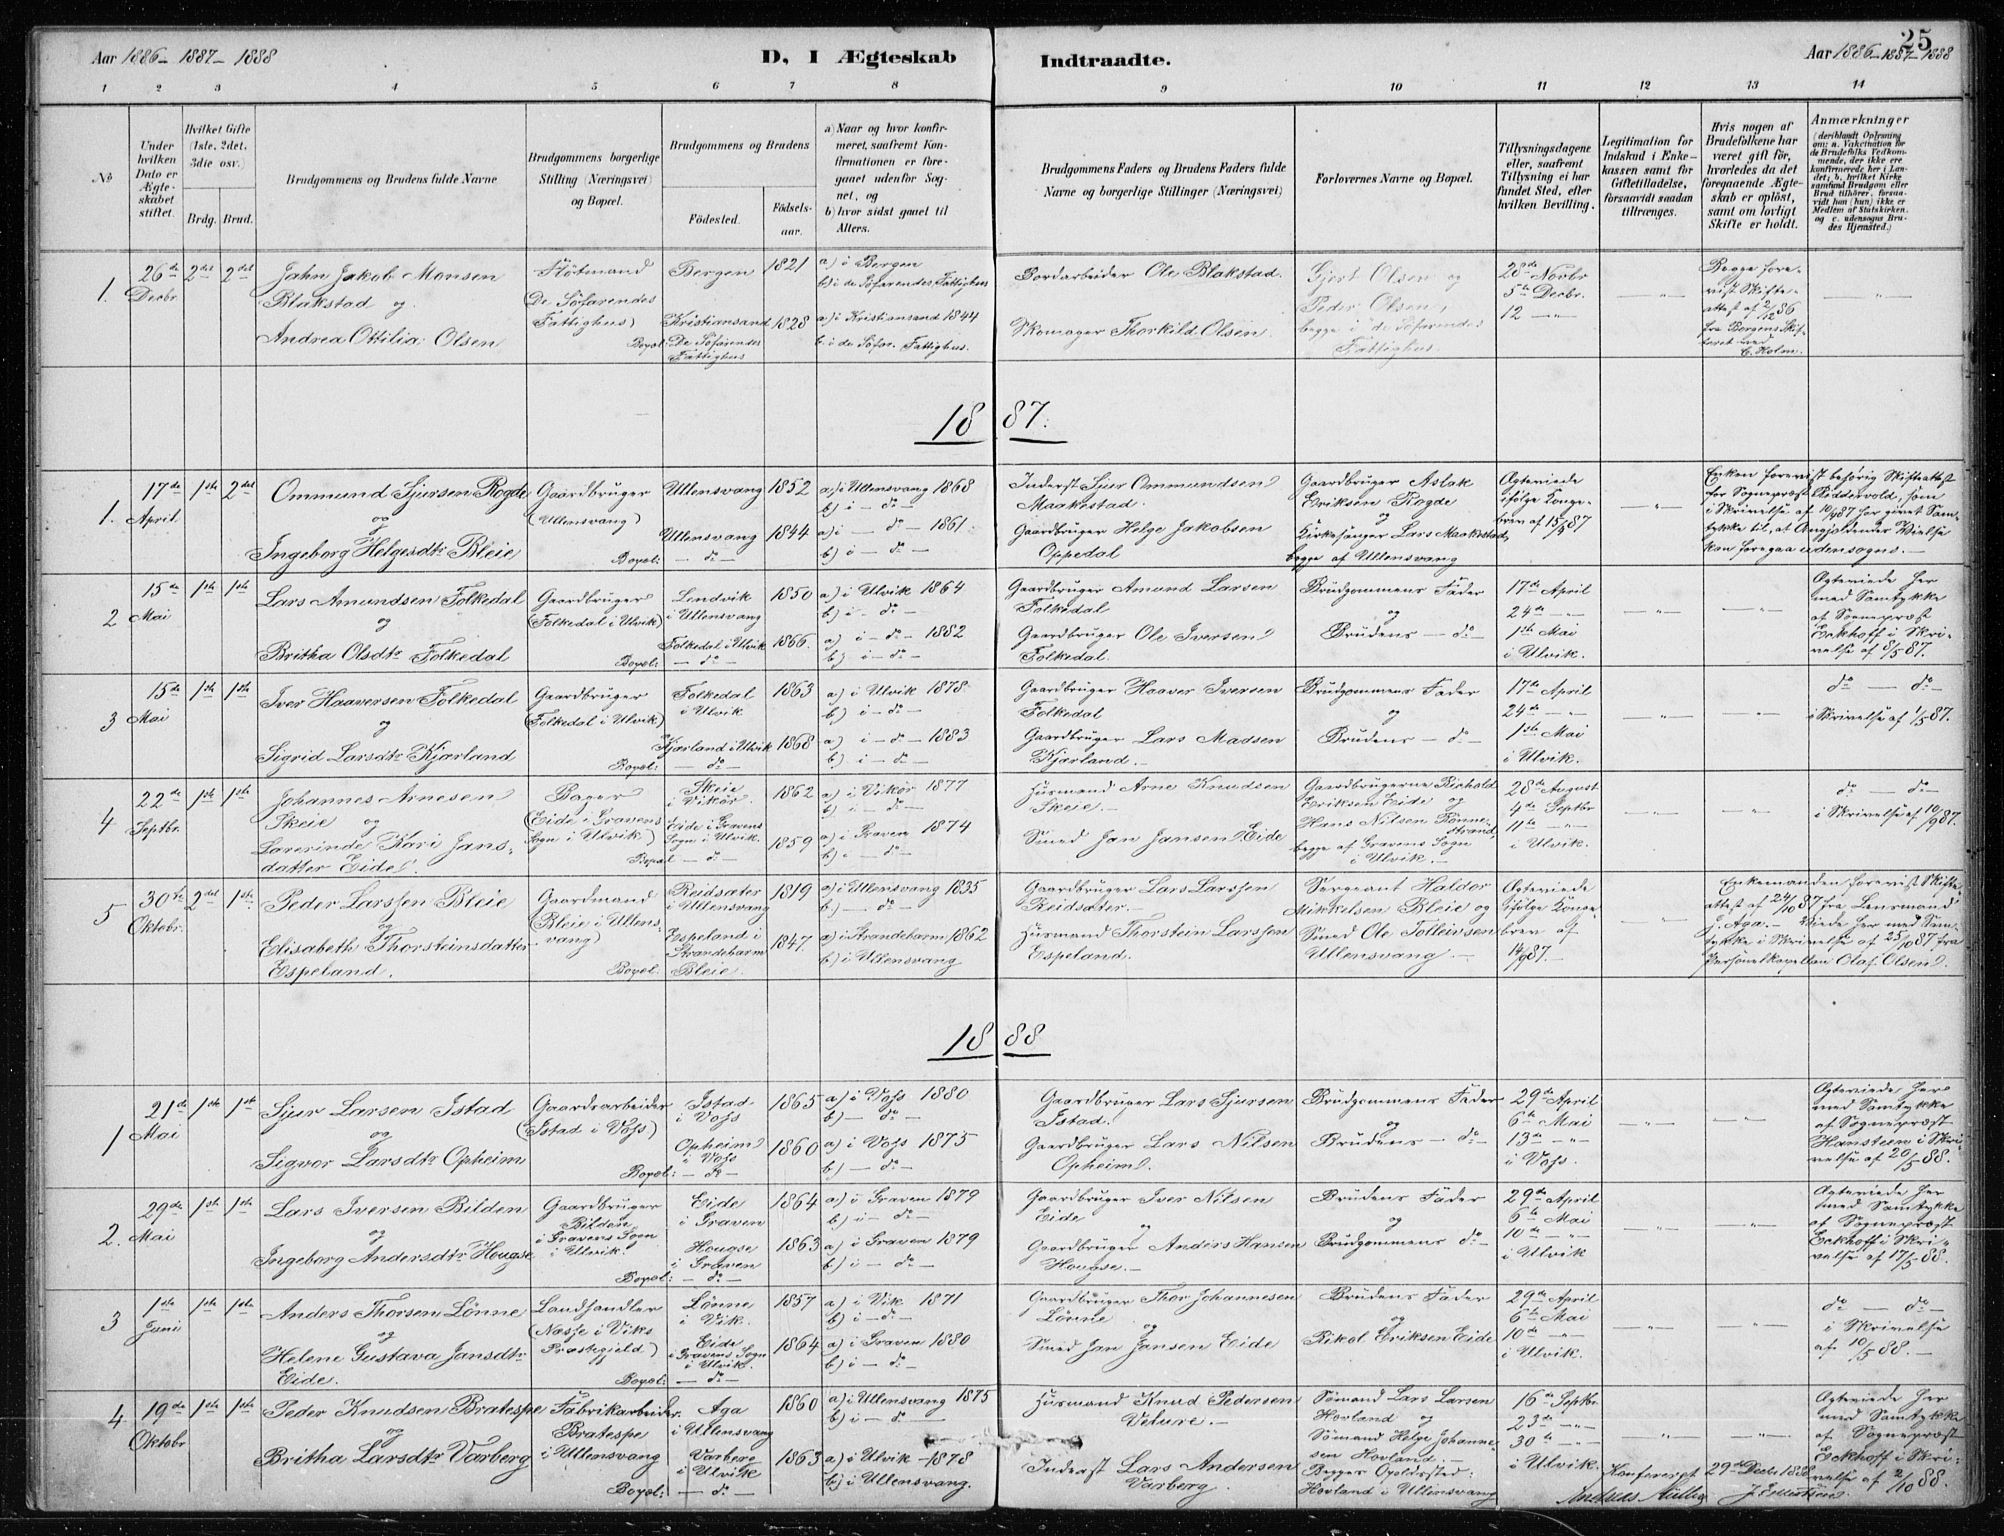 25
Aar 1886 – 1887 – 1888
D, I Ægteskab Indtraadte.
Aar 1886 – 1887 – 1888
1 2 3 4 5 6 7 8 9 10 11 12 13 14
No
Under hvilken Dato er Ægteskabet stiftet.
Hvilket Gifte (1ste, 2det, 3die osv.)
Brdg. Brud.
Brudgommens og Brudens fulde Navne
Brudgommens borgerlige Stilling (Næringsvei) og Bopæl.
Brudgommens og Brudens
Fødested.
Fødselsaar.
a) Naar og hvor konfirmeret, saafremt Konfirmationen er foregaaet udenfor Sognet, og
b) hvor sidst gaaet til Alters.
Brudgommens Faders og Brudens Faders fulde Navne og borgerlige Stillinger (Næringsvei)
Forlovernes Navne og Bopæl.
Tillysningsdagene eller, saafremt Tillysning ei har fundet Sted, efter hvilken Bevilling.
Legitimation for Indskud i Enkekassen samt for Giftetilladelse, forsaavidt saadan tiltrænges.
Hvis nogen af Brudefolkene har været gift før, hvorledes da det foregaaende Ægteskab er opløst, samt om lovligt Skifte er holdt.
Anmærkninger
(deriblandt Oplysning om: a. Vakcination for de Brudefolks Vedkommende, der ikke ere konfirmerede her i Landet; b. hvilket Kirkesamfund Brudgom eller Brud tilhører, forsaavidt han (hun) ikke er Medlem af Statskirken, og c. udensogns Brudes Hjemsted.)
1. 26de Decbr. 2det 2det
Jahn Jakob Monsen Blakstad og
Andrea Ottilia Olsen
Flötmand
(De Söfarendes Fattighus)
Bopæl:
Bergen 1821
Kristiansand 1828
De Söfarendes Fattighus
a) i Bergen
b) i de Söfarendes Fattighus
a) i Kristiansand 1844
b) i de Söfar. Fattighus.
Bordarbeider Ole Blakstad.
Skomager Thorkild Olsen.
Gjert Olsen og
Peder Olsen,
begge i de Söfarendes Fattighus.
28de Novbr
5te Decbr.
12 – " –
– " –
Begge forevist Skifteattest af 2/12 86 fra Bergens Skifteret ved C. Holm.
– " –
1887.
1. 17de April 1ste 2det
Ommund Sjursen Rogde
og
Ingeborg Helgesdtr Bleie
Gaardbruger
(Ullensvang)
Bopæl:
Ullensvang 1852
Ullensvang 1844
– do –
a) i Ullensvang 1868
b) i – do –
a) i – do – 1861.
b) i – do –
Inderst Sjur Ommundsen Maakestad.
Gaardbruger Helge Jakobsen Oppedal
Gaardbruger Aslak Eriksen Rogde
og
Kirkesanger Lars Maakestad,
begge af Ullensvang
Ægteviede ifölge Kongebrev af 15/4 87
– " –
Enken forevist behörig Skifteattest for Sognepræst Ridderwold, som i Skrivelse af 10/4 87 har givet Samtykke til, at Angjældenes Vielse kan foregaa udensogns. –
2 15de Mai 1ste 1ste
Lars Amundsen Folkedal
og
Britha Olsdtr Folkedal
Gaardbruger
(Folkedal i Ulvik)
Bopæl:
Lindvik i Ullensvang 1850
Folkedal i Ulvik 1866.
– do –
a) i Ulvik 1864
b) i – do –
a) i – do – 1882
b) i – do –
Gaardbruger Amund Larsen Folkedal
Gaardbruger Ole Iversen Folkedal.
Brudgommens Fader
og
Brudens – do –
17de April
24de – " –
1ste Mai
i Ulvik.
– " –
– " –
Ægteviede her med Samtykke af Sognepræst Eckhoff i Skrivelse af 8/5 87.
3 15de Mai 1ste 1ste
Iver Haaversen Folkedal
og
Sigrid Larsdtr Kjærland
Gaardbruger
(Folkedal i Ulvik)
Bopæl:
Folkedal i Ulvik 1863
Kjærland i Ulvik 1868
– do –
a) i Ulvik 1878.
b) i – do –
a) i – do – 1883
b) i – do –
Gaardbruger Haaver Iversen Folkedal
Gaardbruger Lars Madsen Kjærland. –
Brudgommens Fader
og
Brudens – do –
17de April
24de – " –
1ste Mai
i Ulvik.
– " –
– " –
do – do –
i Skrivelse af 1/5 87.
4 22de Septbr. 1ste 1ste
Johannes Arnesen Skeie og
Lærerinde Kari Jansdatter Eide.
Bager
(Eide i Gravens Sogn i Ulvik)
Bopæl
Skeie i Vikör. 1862
Eide i Gravens Sogn i Ulvik. 1859
– do –
a) i Vikör 1877
b) i – do –
a) i Graven 1874
b) i – do –
Husmand Arne Knudsen Skeie. –
Smed Jan Jansen Eide
Gaardbrugerne Rikhold Eriksen Eide og
Hans Nilsen Rönnestrand
begge af Gravens Sogn i Ulvik. –
28de August
4de Septbr
11te – " –
i Ulvik.
– " –
– " –
do – do –
i Skrivelse af 10/9 87.
5 30te Oktobr. 2det 1ste
Peder Larssen Bleie
og
Elisabeth Thorsteinsdatter Espeland.
Gaardmand
(Bleie i Ullensvang)
Bopæl:
Reidsæter i Ullensvang 1819
Espeland i Strandebarm 1847
Bleie.
a) i Ullensvang 1835
b) – do –
a) i Strandebarm 1862
b) i Ullensvang
Gaardbruger Lars Larssen Reidsæter. –
Husmand Thorstein Larssen Espeland.
Sergeant Haldor Mikkelsen Bleie og
Smed Ole Solleivsen
Ullensvang. –
Ægteviede ifölge Kongebrev af 14/9 87. –
Enkemanden forevist Skifteattest af 24/10 87 fra Lensmand J. Aga. – Viede her med Samtykke i Skrivelse af 25/10 87 fra Personelkapellan Olaf Olsen.
1888
1 21de Mai 1ste 1ste
Sjur Larsen Istad
og
Sigvor Larsdtr Opheim
Gaardsarbeider
(Istad i Voss)
Bopæl:
Istad i Voss 1865
Opheim i Voss 1860
– do –
a) i Voss 1880
b) – do –
a) i Voss 1875
b) – do –
Gaardbruger Lars Sjursen Istad.
Gaardbruger Lars Nilsen Opheim.
Brudgommens Fader
og
Brudens – do –
29de April
6te Mai
13de – " –
i Voss.
– " –
– " –
Ægteviede her med Samtykke af Sognepræst Hansteen i Skrivelse af 20/5 88.
2. 29de Mai 1ste 1ste
Lars Iversen Bilden
og
Ingeborg Andersdtr Hougse
Gaardbruger
Bilden i Gravens Sogn i Ulvik.
Bopæl:
Eide i Graven 1864
Hougse i Graven 1863
– do –
a) i Graven 1879
b) i – do –
a) i Graven 1879
b) i – do –
Gaardbruger Iver Nilsen Eide
og
Gaardbruger Anders Hansen Hougse. –
Brudens Fader
og
Brudgommens do –
29de April
6te Mai
10de – " –
i Ulvik
– " –
– " –
Ægteviede her med Samtykke af Sognepræst Eckhoff i Skrivelse af 17/5 88.
3 1ste Juni 1ste 1ste
Anders Thorsen Lönne
og
Helene Gustava Jansdtr Eide.
Landhandler
(Næsse i Viks Præstegjeld)
Bopæl:
Lönne i Vik. 1857
Eide i Gravens Sogn i Ulvik. 1864
– do –
a) i Vik 1871
b) i – do –
a) i Graven 1880
b) i – do –
Gaardbruger Thor Johannesen Lönne
og
Smed Jan Jansen Eide
Brudens Fader
og
Rikol Eriksen Eide
29de April
6te Mai
10de – " –
i Ulvik.
– " –
– " –
do – do –
i Skrivelse af 10/5 88. –
4. 19de Oktobr 1ste 1ste
Peder Knudsen Bratespe
og
Britha Larsdtr Varberg
Fabrikarbeider.
Bratespe i Ullensvang
Bopæl:
Aga i Ullensvang 1860
Varberg i Ulvik 1863
– do –
a) i Ullensvang 1875
b) i – do –
a) i Ulvik – 1878
b) i Ullensvang.
Husmand Knud Pedersen Veture. –
Inderst Lars Andersen Varberg.
Sömand Lars Larsen Hovland og
Sömand Helge Johannesen Hovland. –
Begges Opoldssted:
Hovland i Ullensvang
16de Septbr.
23de – " –
30te – " –
i Ulvik.
– " –
– " –
Ægteviede her med Samtykke af Sognepræst Eckhoff i Skrivelse af 2/10 88.
Konfereret 29de Decbr 1888